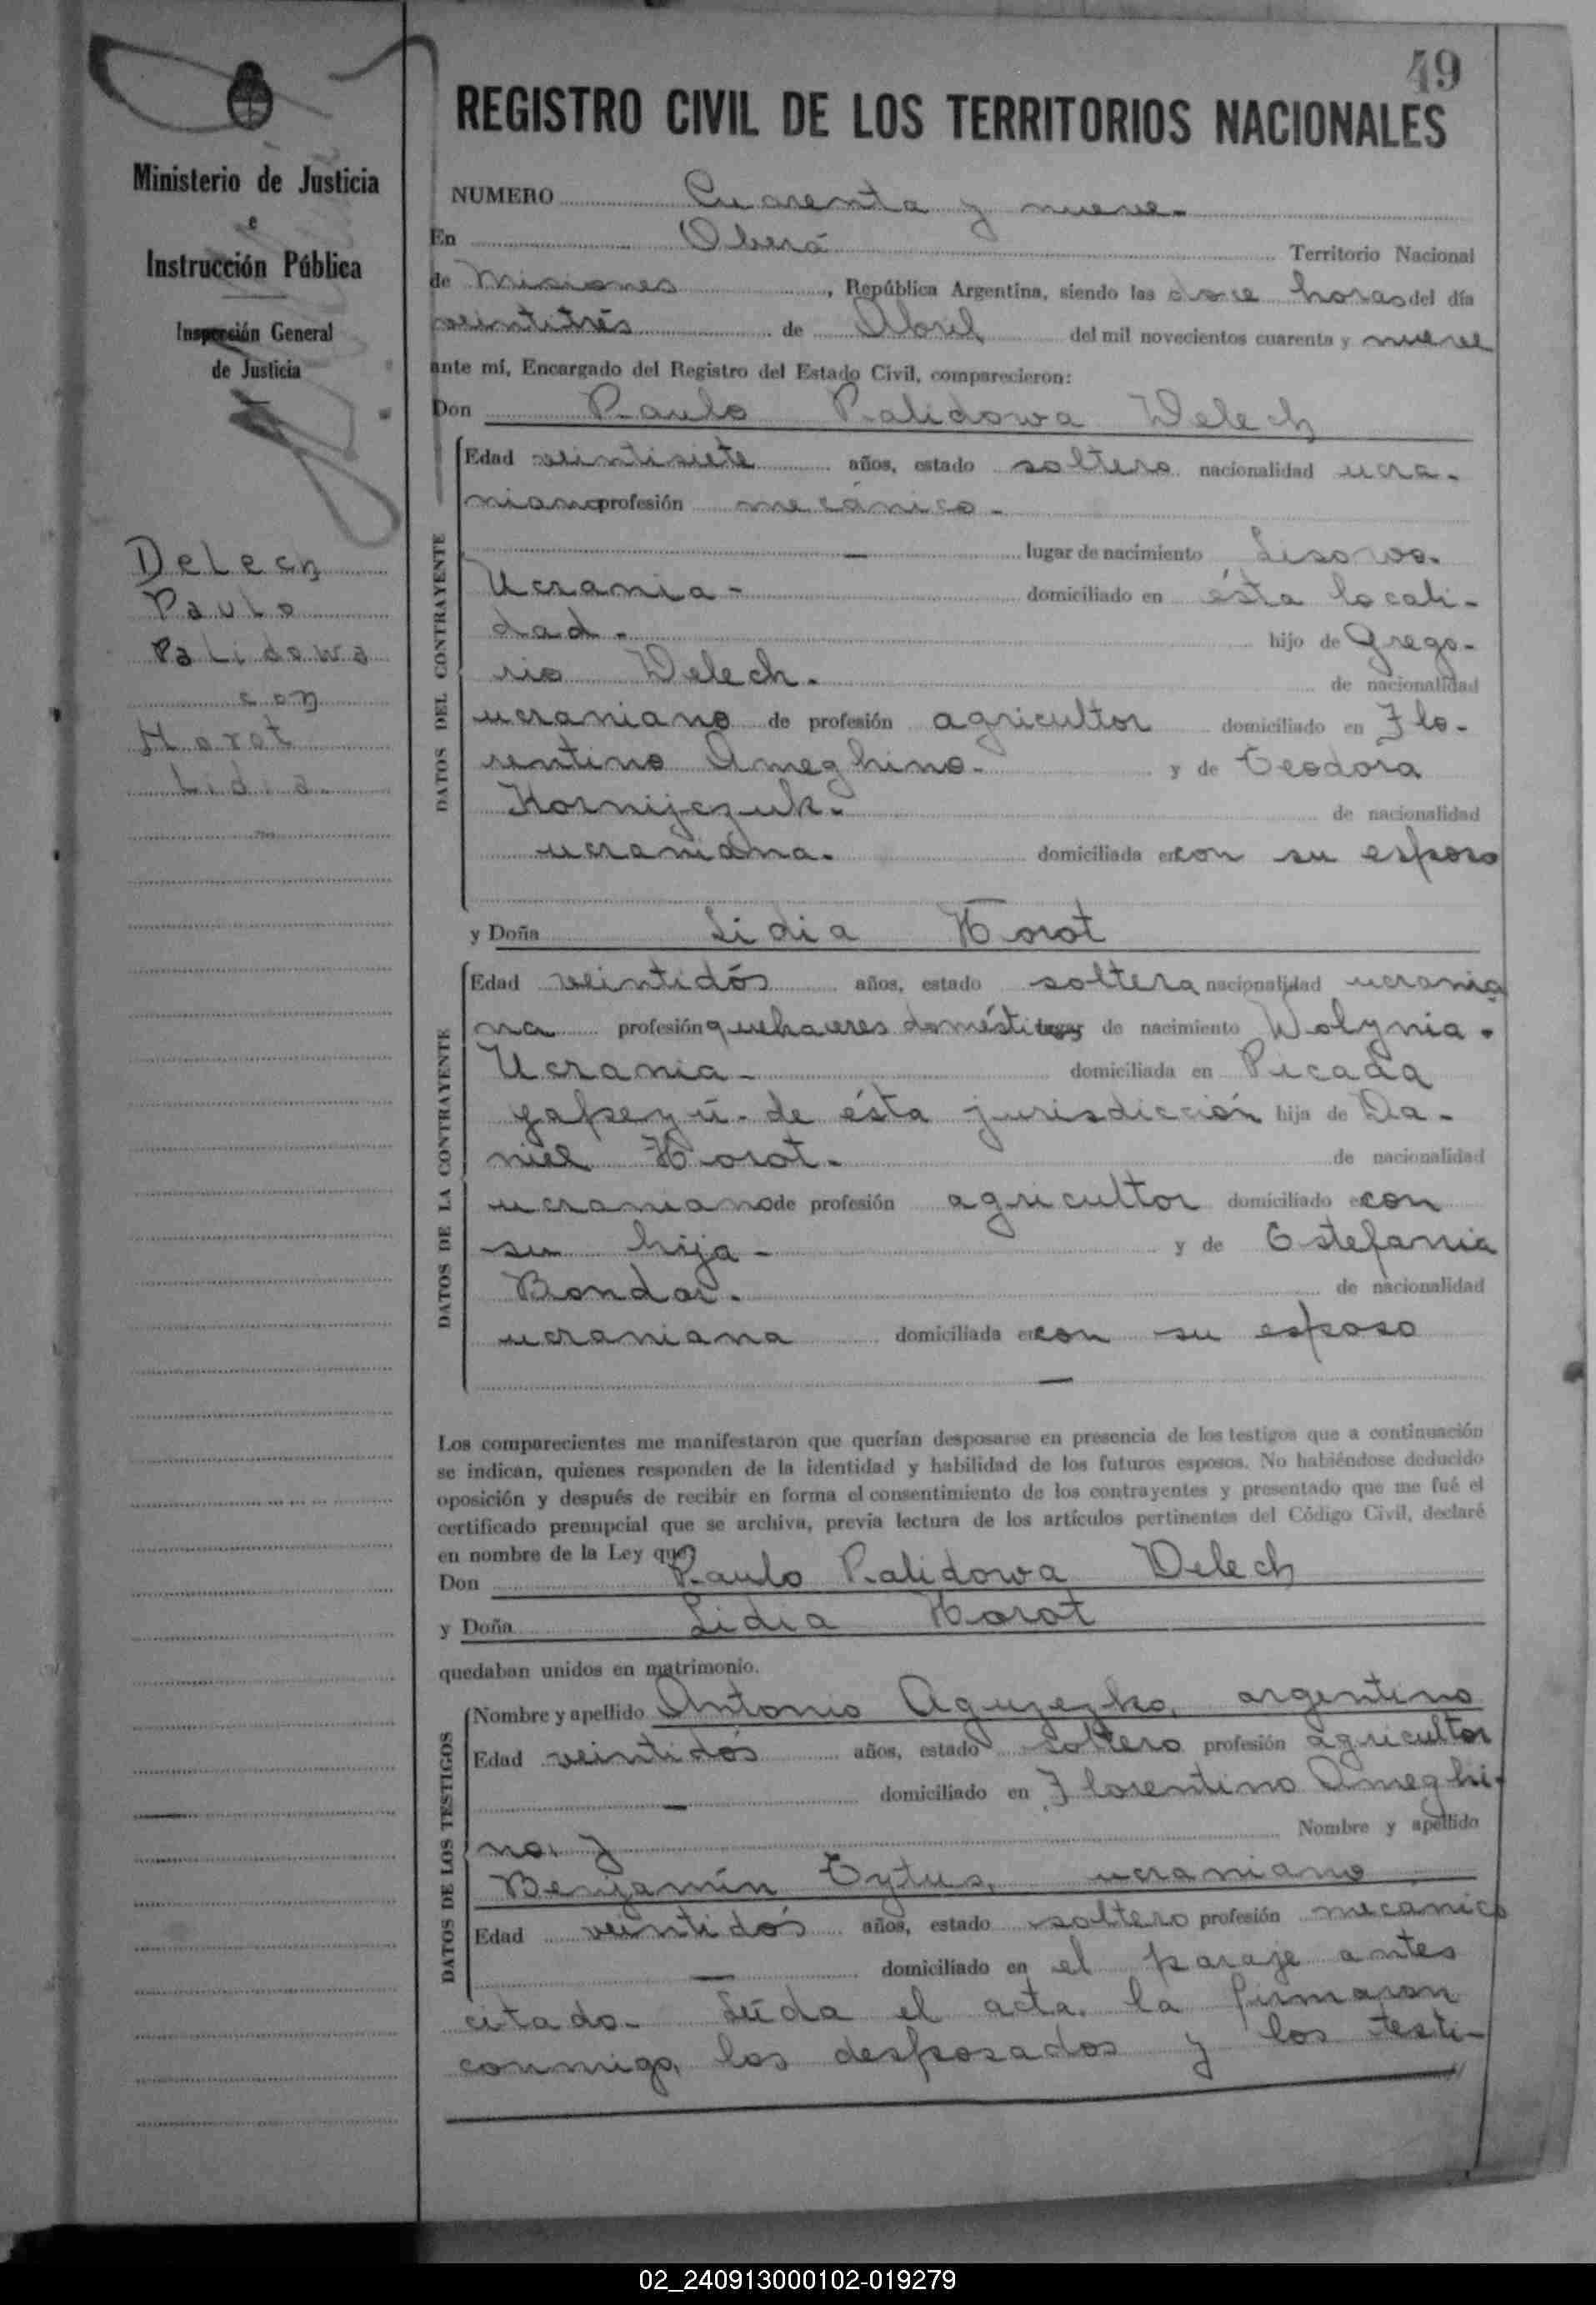 49
REGISTRO CIVIL DE LOS TERRITORIOS NACIONALES
Ministerio de Justicia
e
Instrucción Pública
Inspección General
de Justicia
Delech
Paulo
Palidowa
con
Horot
Lidia
NUMERO Cuarenta y nueve.
En Oberá Territorio Nacional
de Misiones, República Argentina, siendo las doce horas del día
veintitrés de Abril del mil novecientos cuarenta y nueve
ante mí, Encargado del Registro del Estado Civil, comparecieron:
Don Paulo Palidowa Delech
DATOS DEL CONTRAYENTE
Edad veintisiete años, estado soltero nacionalidad ucra-
niano profesión mecánico.
lugar de nacimiento Lisowo.
Ucrania - domiciliado en ésta locali-
dad. hijo de Grego-
rio Delech. de nacionalidad
ucraniano de profesión agricultor domiciliado en Flo-
rentino Ameghino. y de Teodora
Kornijczuk. de nacionalidad
ucraniana. domiciliada en con su esposo
y Doña Lidia Horot
DATOS DE LA CONTRAYENTE
Edad veintidós años, estado soltera nacionalidad ucrania
na profesión quehaceres domésticos lugar de nacimiento Wolynia.
Ucrania - domiciliada en Picada
Yapeyú - de ésta jurisdicción hija de Da-
niel Horot. de nacionalidad
ucraniano de profesión agricultor domiciliado en con
su hija - y de Estefania
Bondar. de nacionalidad
ucraniana domiciliada en con su esposo
Los comparecientes me manifestaron que querían desposarse en presencia de los testigos que a continuación
se indican, quienes responden de la identidad y habilidad de los futuros esposos. No habiéndose deducido
oposición y después de recibir en forma el consentimiento de los contrayentes y presentado que me fué el
certificado prenupcial que se archiva, previa lectura de los artículos pertinentes del Código Civil, declaré
en nombre de la Ley que
Don Paulo Palidowa Delech
y Doña Lidia Horot
quedaban unidos en matrimonio.
DATOS DE LOS TESTIGOS
Nombre y apellido Antonio argentino
Edad veintidós años, estado soltero profesión agricultor
domiciliado en Florentino Ameghi-
no, y Nombre y apellido
Benjamín Tytus, ucraniano
Edad veintidós años, estado soltero profesión mecánico
domiciliado en el paraje antes
citado. Leída el acta, la firmaron
conmigo, los desposados y los testi-
02_240913000102-019279